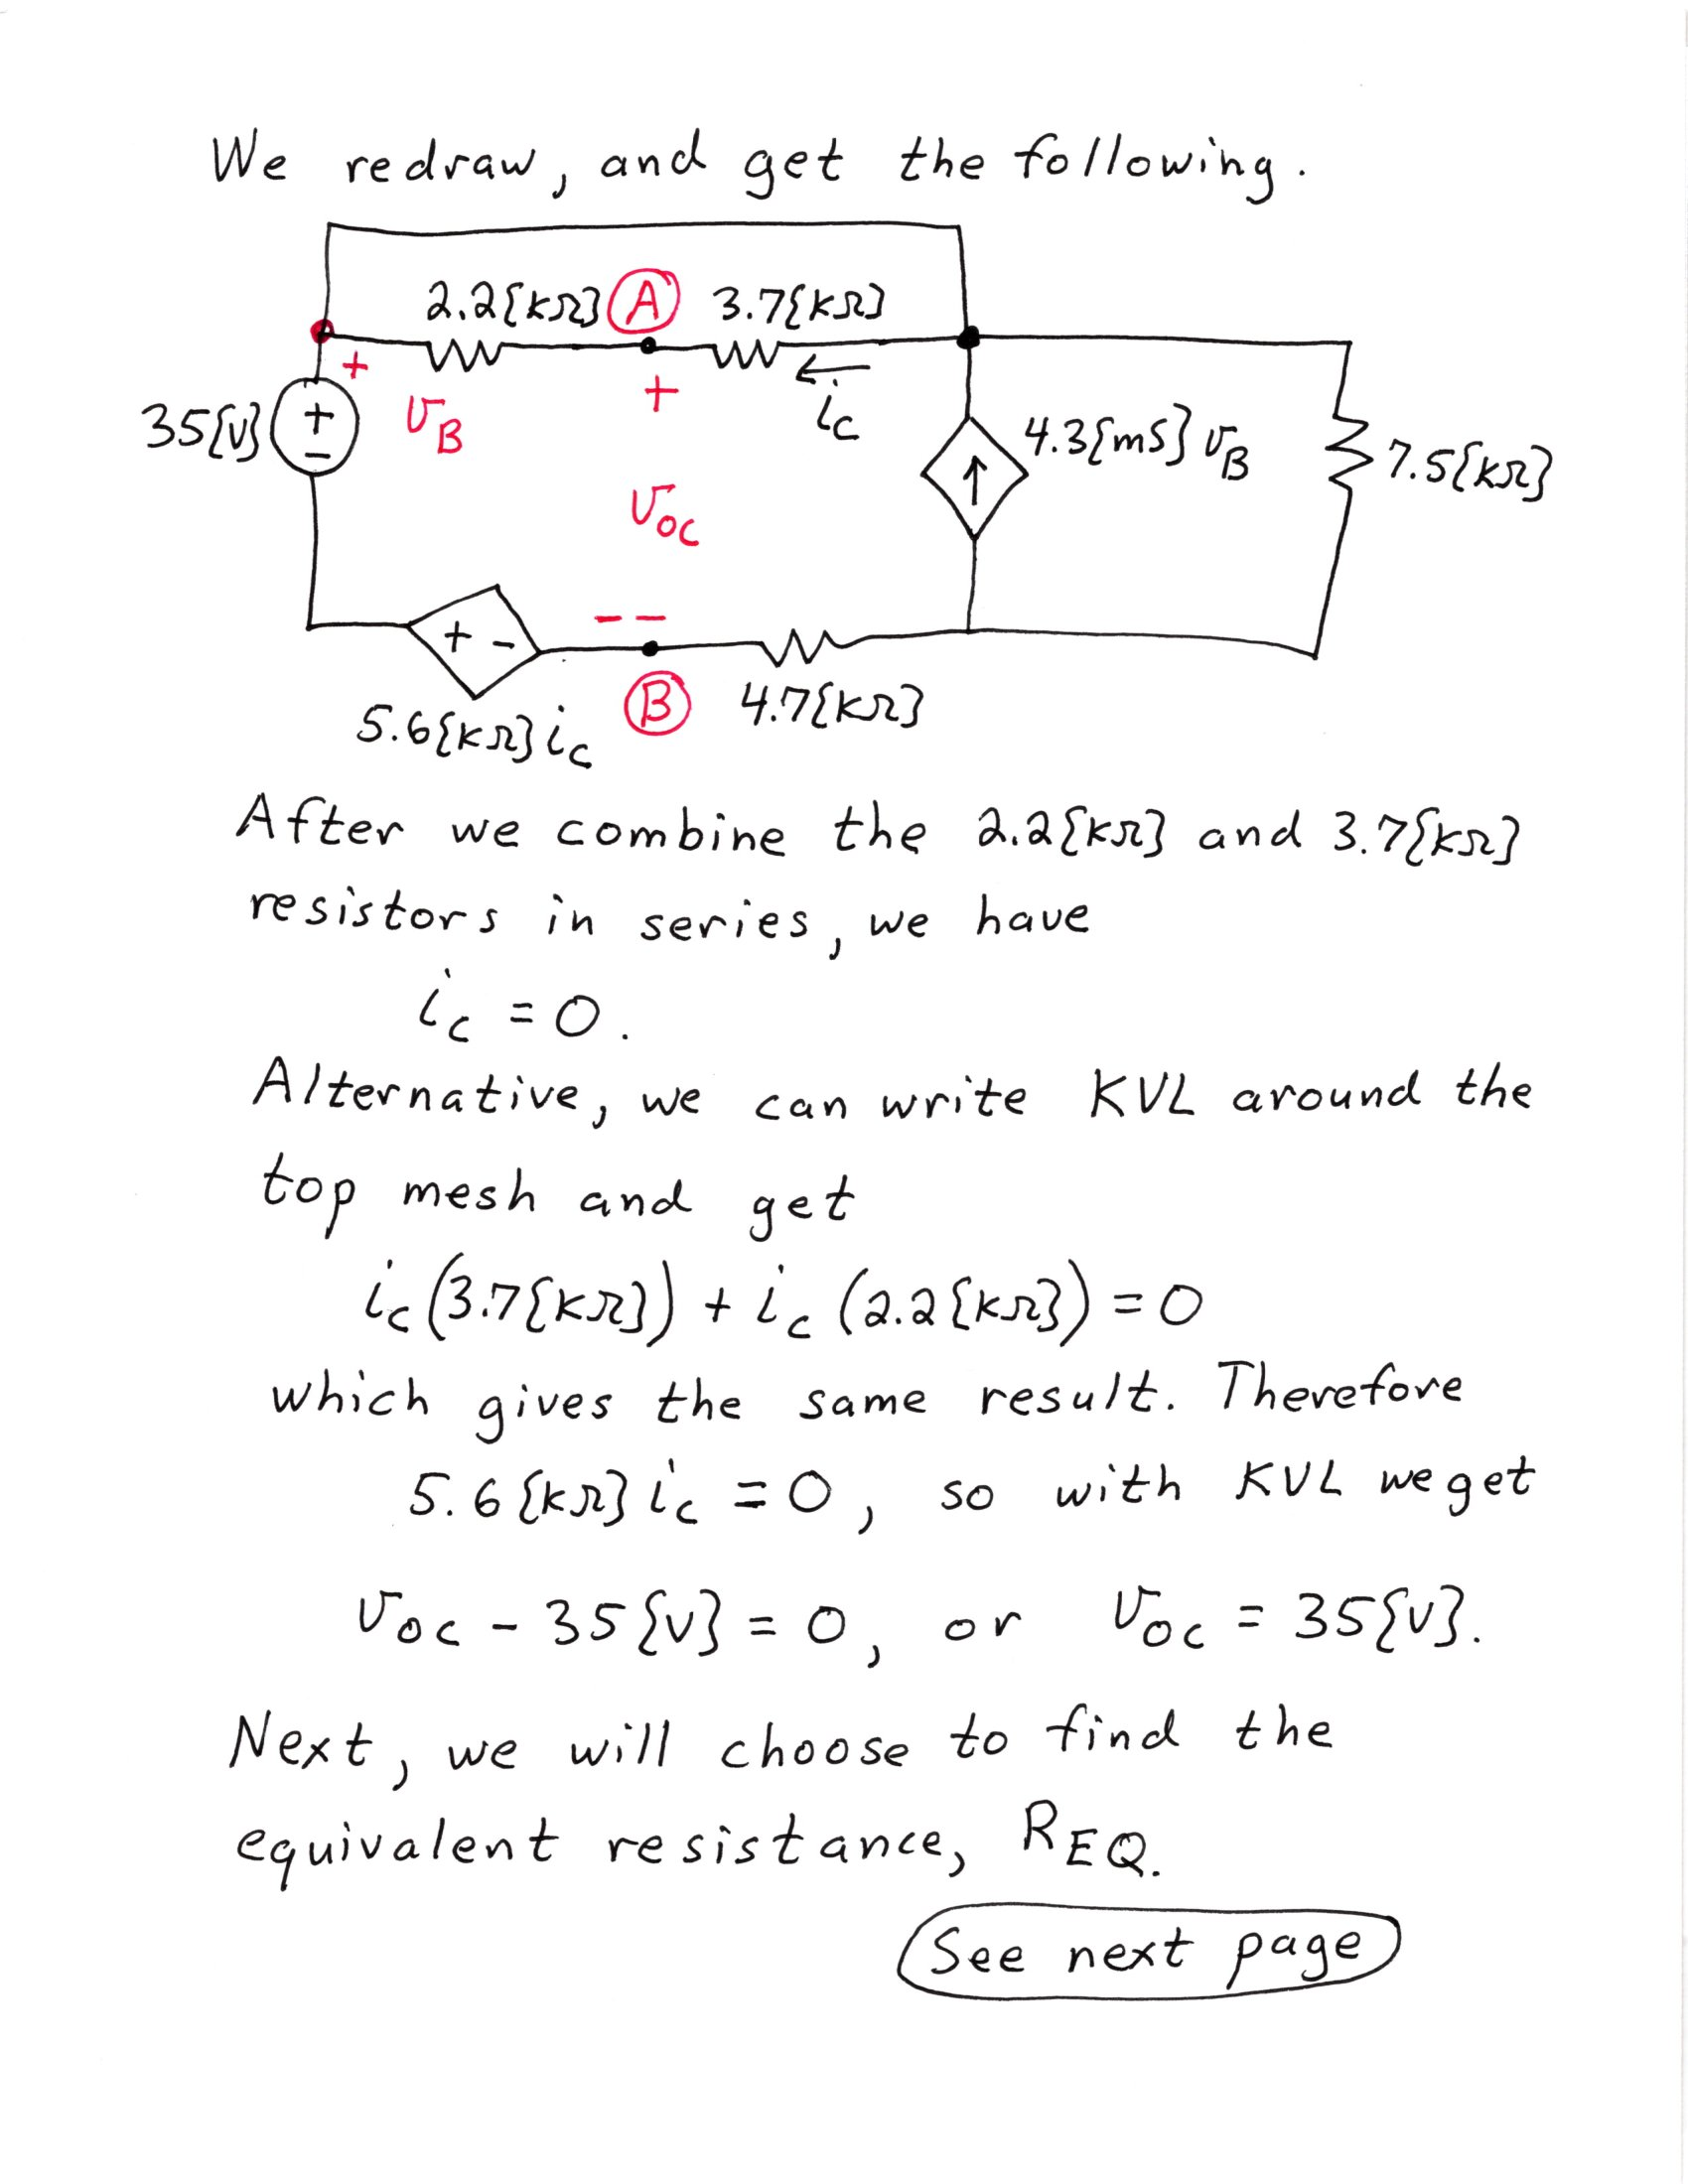 We redraw, and get the following.
2.2{kΩ} A 3.7{kΩ}
+ +
35{V} + - v_B i_C 4.3{mS} v_B 7.5{kΩ}
v_OC
- -
+ -
5.6{kΩ} i_C B 4.7{kΩ}
After we combine the 2.2{kΩ} and 3.7{kΩ}
resistors in series, we have
i_C = 0.
Alternative, we can write KVL around the
top mesh and get
i_C (3.7{kΩ}) + i_C (2.2{kΩ}) = 0
which gives the same result. Therefore
5.6{kΩ} i_C = 0, so with KVL we get
v_OC - 35{V} = 0, or v_OC = 35{V}.
Next, we will choose to find the
equivalent resistance, R_EQ.
See next page